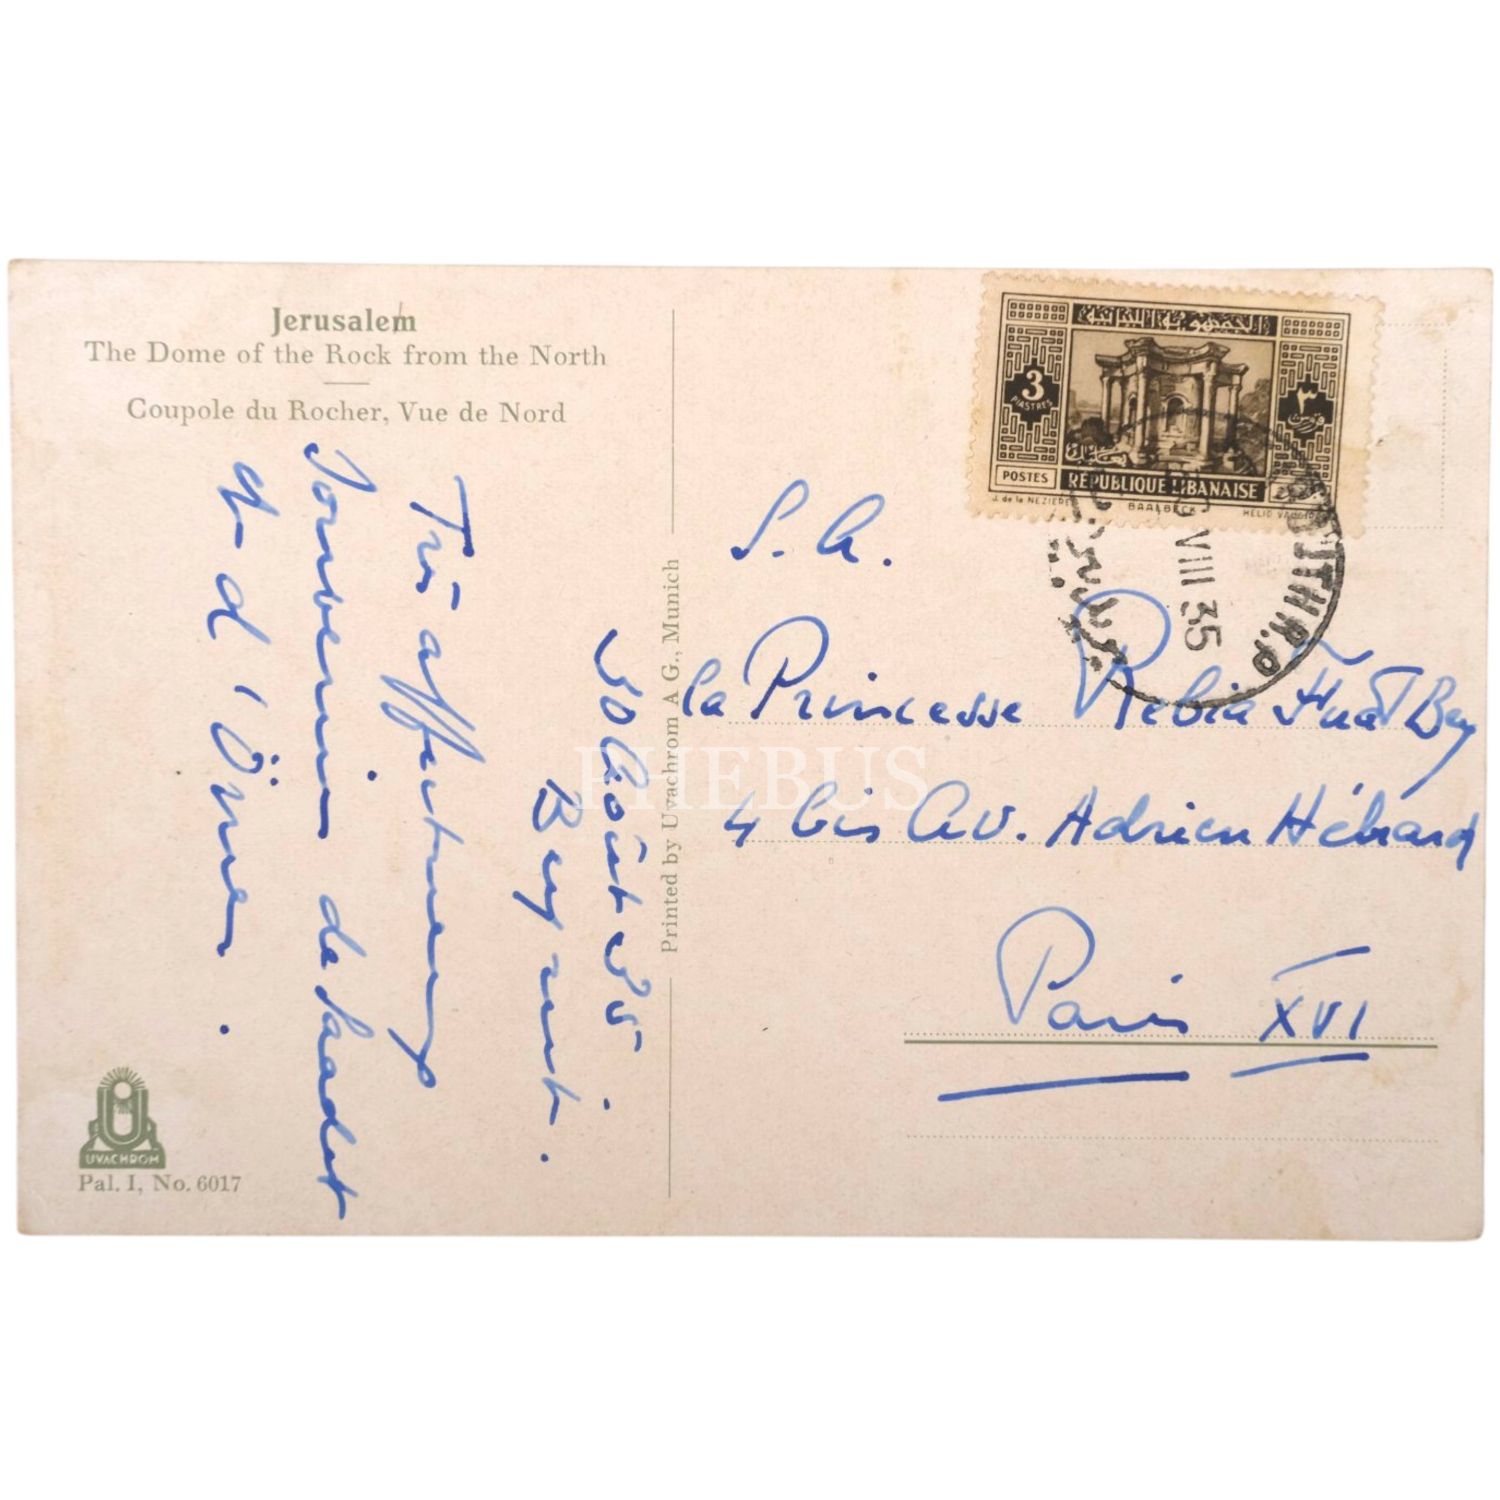 Jerusalem
The Dome of the Rock from the North
Coupole du Rocher, Vue de Nord
30 Août 35.
Beyrout.
Très affectueux
souvenir de Saadet
et d'Ömer.
Printed by Uvachrom A G., Munich
UVACHROM
Pal. I, No. 6017
الجمهورية اللبنانية
3
PIASTRES
٣
قروش
بعلبك
POSTES
RÉPUBLIQUE LIBANAISE
J. de la NEZIERE
BAALBECK
HELIO VAUGIRARD
VIII 35
S. A.
la Princesse Rebia Fuat Bey
4 bis Av. Adrien Hébrard
Paris XVI
PHEBUS